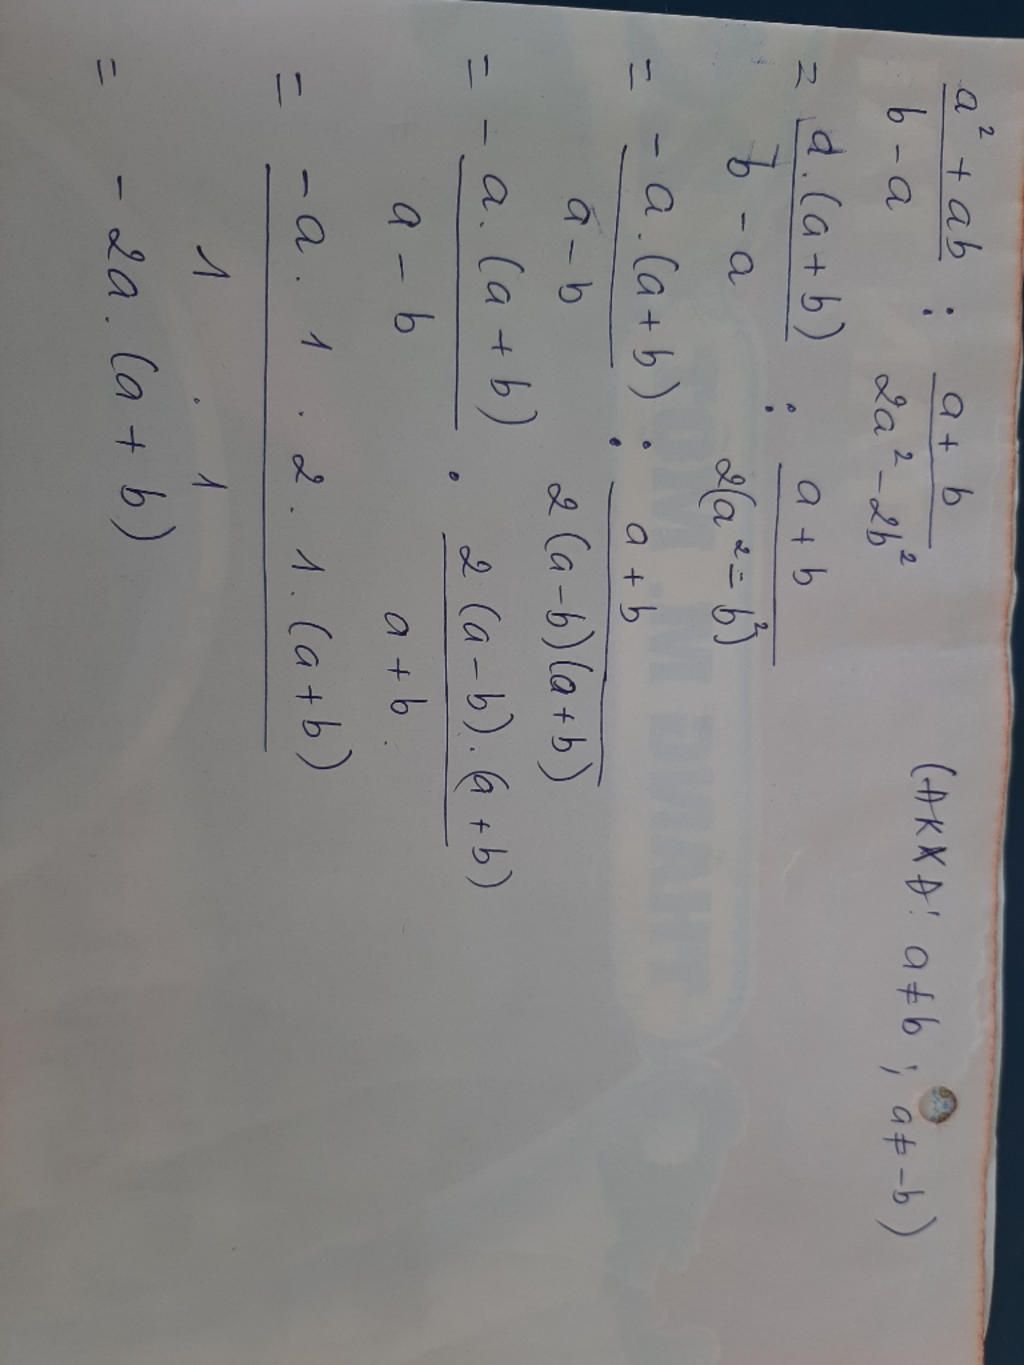 a² + ab / b - a : a + b / 2a² - 2b² (ĐKXĐ: a ≠ b ; a ≠ -b)
= a.(a + b) / b - a : a + b / 2(a² - b²)
= -a.(a + b) / a - b : a + b / 2(a - b)(a + b)
= -a.(a + b) / a - b . 2(a - b).(a + b) / a + b.
= -a . 1 . 2 . 1 . (a + b) / 1 . 1
= - 2a.(a + b)